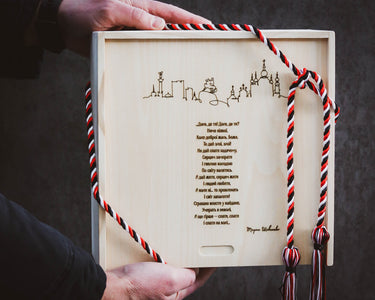 ...Доле, де ти! Доле, де ти?
Нема ніякої,
Коли доброї жаль, Боже,
То дай злої, злої!
Не дай спати ходячому,
Серцем замирати
І гнилою колодою
По світу валятись.
А дай жити, серцем жити
І людей любити,
А коли ні... то проклинати
І світ запалити!
Страшно впасти у кайдани,
Умирать в неволі,
А ще гірше — спати, спати
І спати на волі...
Тарас Шевченко